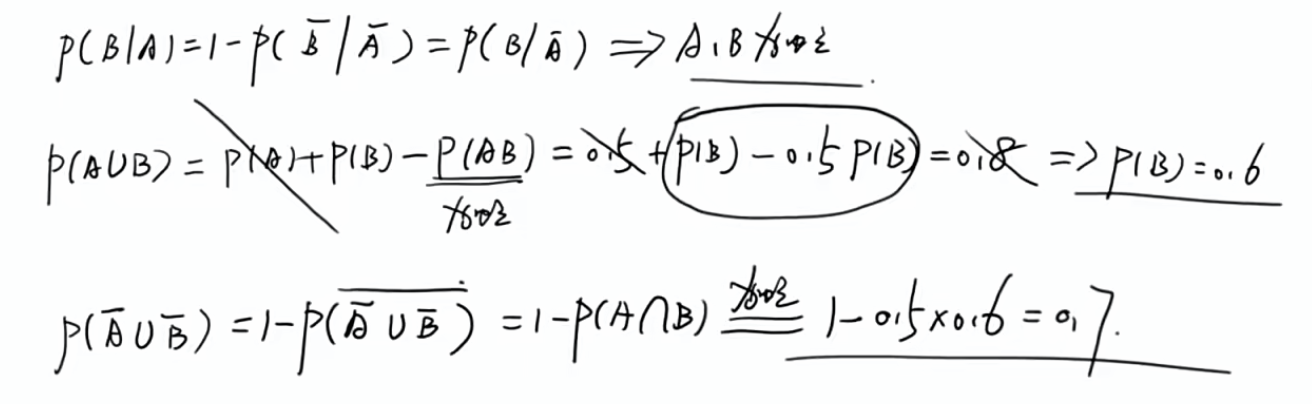 P(B/A)=1-P(B̅/A̅)=P(B/A̅)⇒A,B独立
P(A∪B)=P(A)+P(B)-P(AB)=0.5+P(B)-0.5P(B)=0.8⇒P(B)=0.6
独立
P(A̅∪B̅)=1-P(\overline{A̅∪B̅})=1-P(A∩B) 独立 = 1-0.5×0.6=0.7.